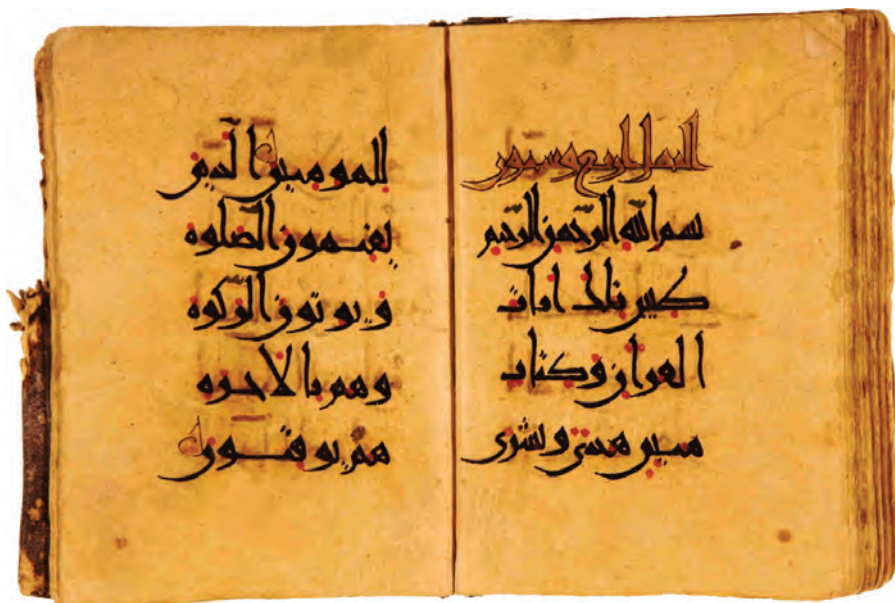 النمل اربع وتسعون
بسم الله الرحمن الرحيم
طس تلك ايات
القران وكتاب
مبين هدى وبشرى
للمومنين الذين
يقيمون الصلوة
ويوتون الزكوة
وهم بالاخرة
هم يوقنون